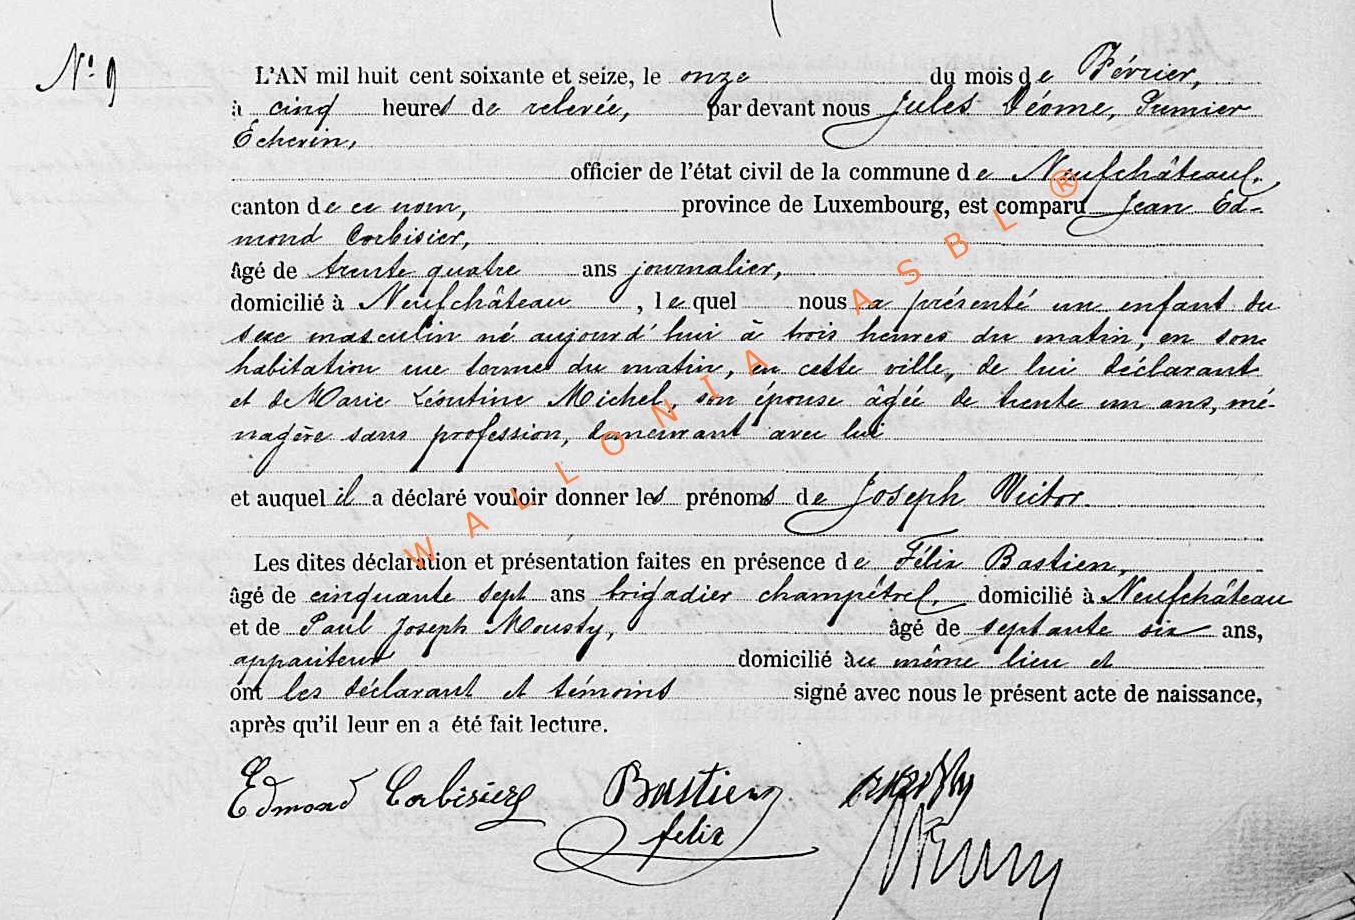 N° 9
L'AN mil huit cent soixante et seize, le onze du mois de Février,
à cinq heures de relevée, par devant nous Jules Déome, Premier
Echevin,
officier de l'état civil de la commune de Neufchâteau,
canton de ce nom, province de Luxembourg, est comparu Jean Ed-
mond Corbisier,
âgé de trente quatre ans journalier,
domicilié à Neufchâteau, lequel nous a présenté un enfant du
sexe masculin né aujourd'hui à trois heures du matin, en son
habitation rue du matin, en cette ville, de lui déclarant
et de Marie Léontine Michel, son épouse âgée de trente un ans, mé-
nagère sans profession, demeurant avec lui
et auquel il a déclaré vouloir donner les prénoms de Joseph Victor.
Les dites déclaration et présentation faites en présence de Félix Bastien,
âgé de cinquante sept ans brigadier champêtre, domicilié à Neufchâteau
et de Paul Joseph Mousty, âgé de septante six ans,
appariteur domicilié au même lieu et
ont les déclarant et témoins signé avec nous le présent acte de naissance,
après qu'il leur en a été fait lecture.
Edmond Corbisier Bastien
felix
WALLONIA ASBL ®